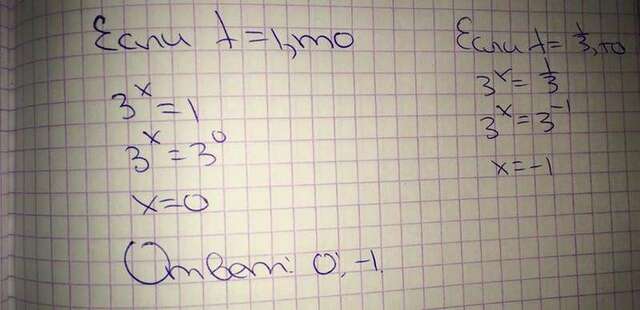 Если t = 1, то
3^x = 1
3^x = 3^0
x = 0
Если t = 1/3, то
3^x = 1/3
3^x = 3^-1
x = -1
Ответ: 0; -1.